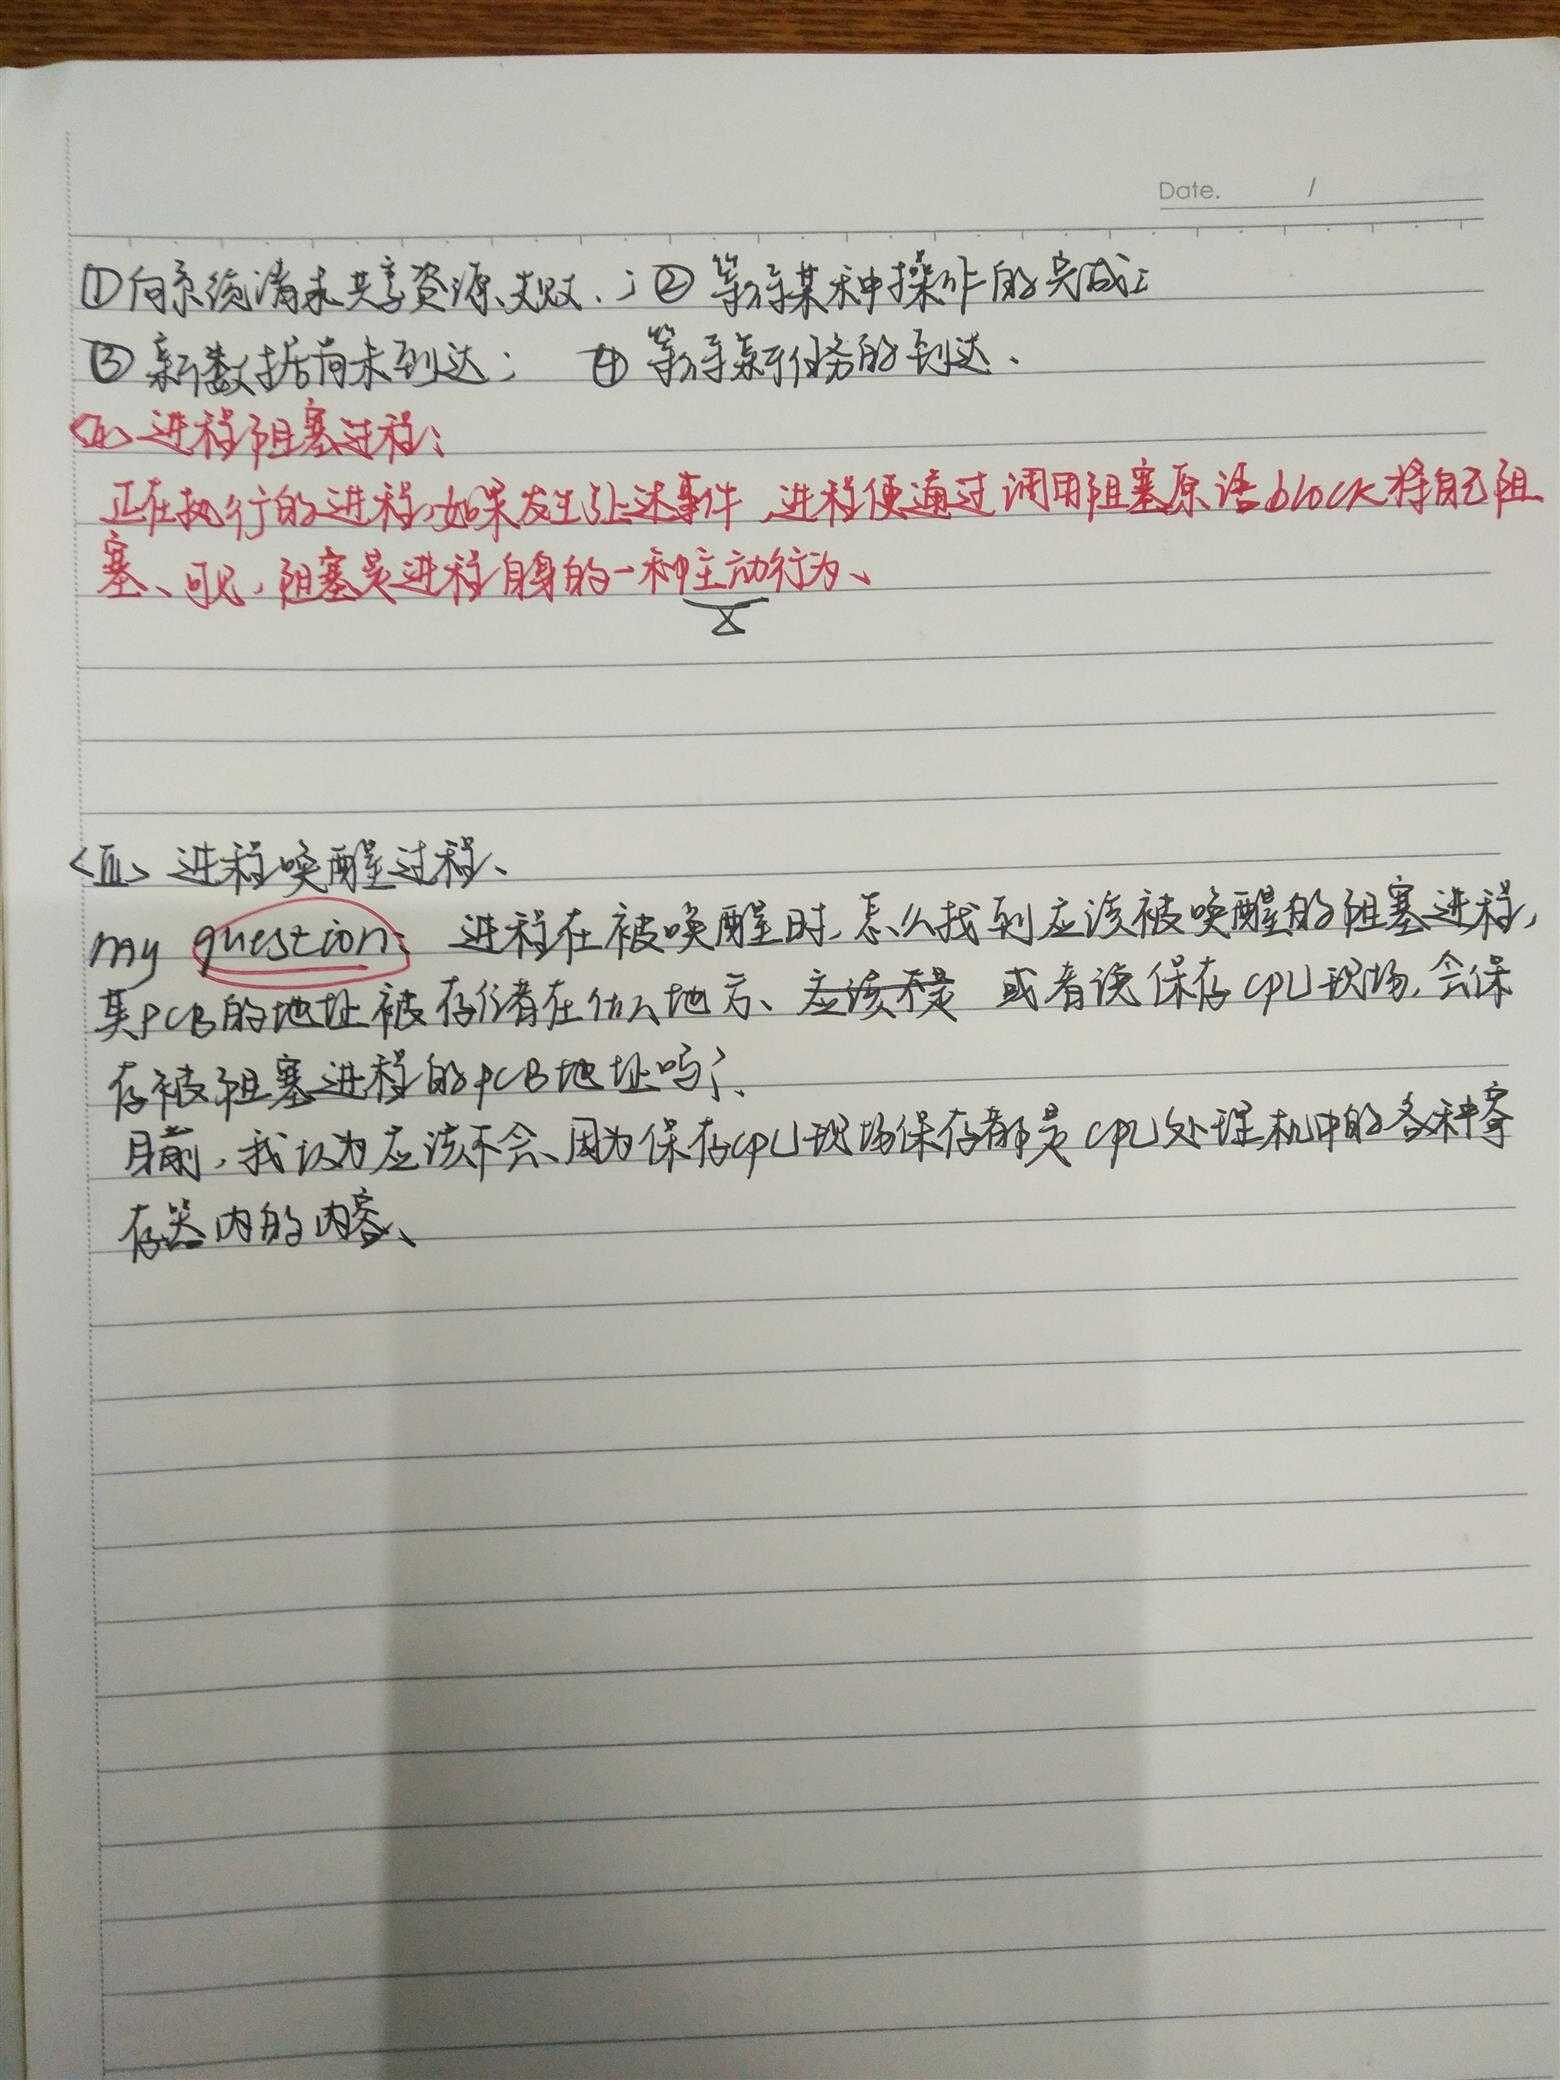 Date. /
①向系统请求共享资源失败.；② 等待某种操作的完成；
③ 新数据尚未到达； ④ 等待新任务的到达、
<II> 进程阻塞过程：
正在执行的进程，如果发生上述事件，进程便通过调用阻塞原语block将自己阻
塞、可见，阻塞是进程自身的一种主动行为、
<III> 进程唤醒过程、
my question： 进程在被唤醒时，怎么找到应该被唤醒的阻塞进程，
其PCB的地址被存储在什么地方、应该不是 或者说保存CPU现场，会保
存被阻塞进程的PCB地址吗？、
目前，我认为应该不会、因为保存CPU现场保存都是CPU处理机中的各种寄
存器内的内容、